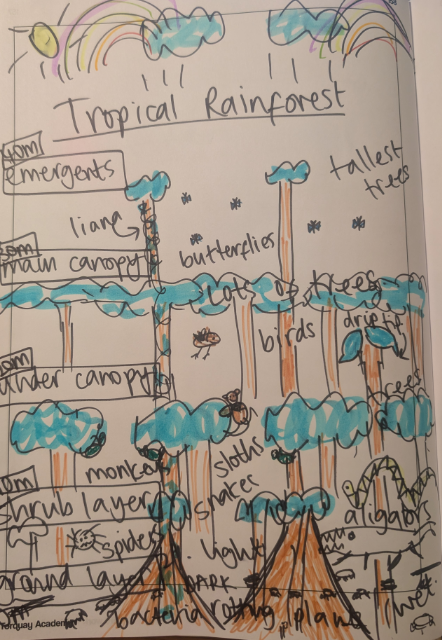 Tropical Rainforest
40m
emergents
tallest
trees
liana
butterflies
main canopy
Lots of trees
birds
drip tip
under canopy
trees
monkey
sloths
snakes
shrub layer
aligators
spider
light
ground layer
DARK
bacteria rotting plants
wet
Torquay Academy